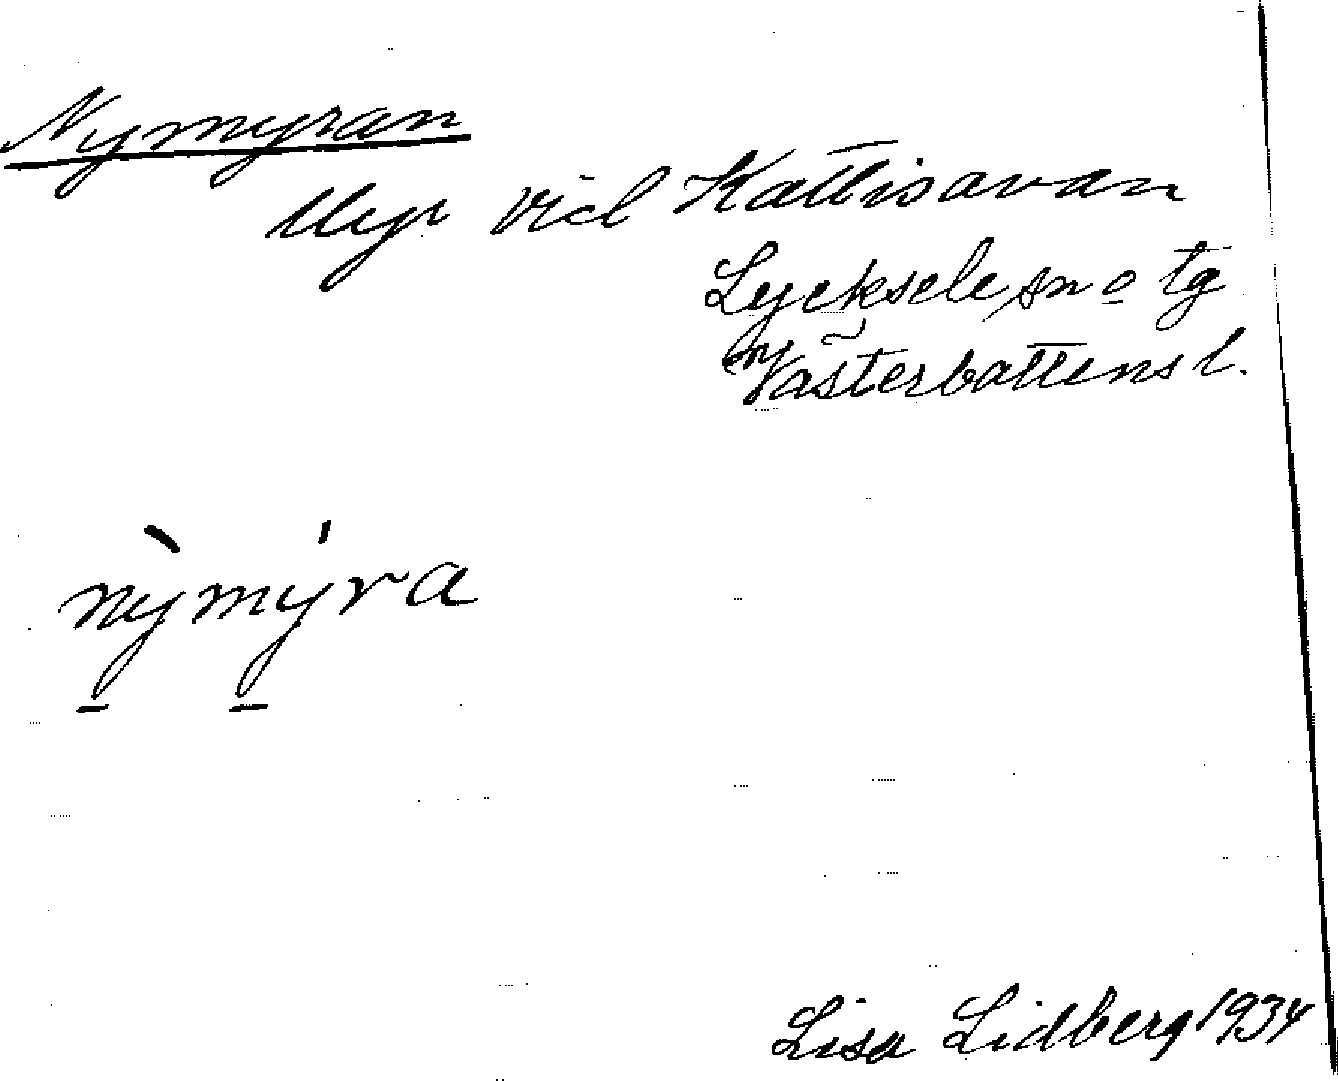 Nymyran
Myr vid Kattisavan
Lycksele sn o tg
Västerbottens l.
nỳmýra
Lisa Lidberg 1934